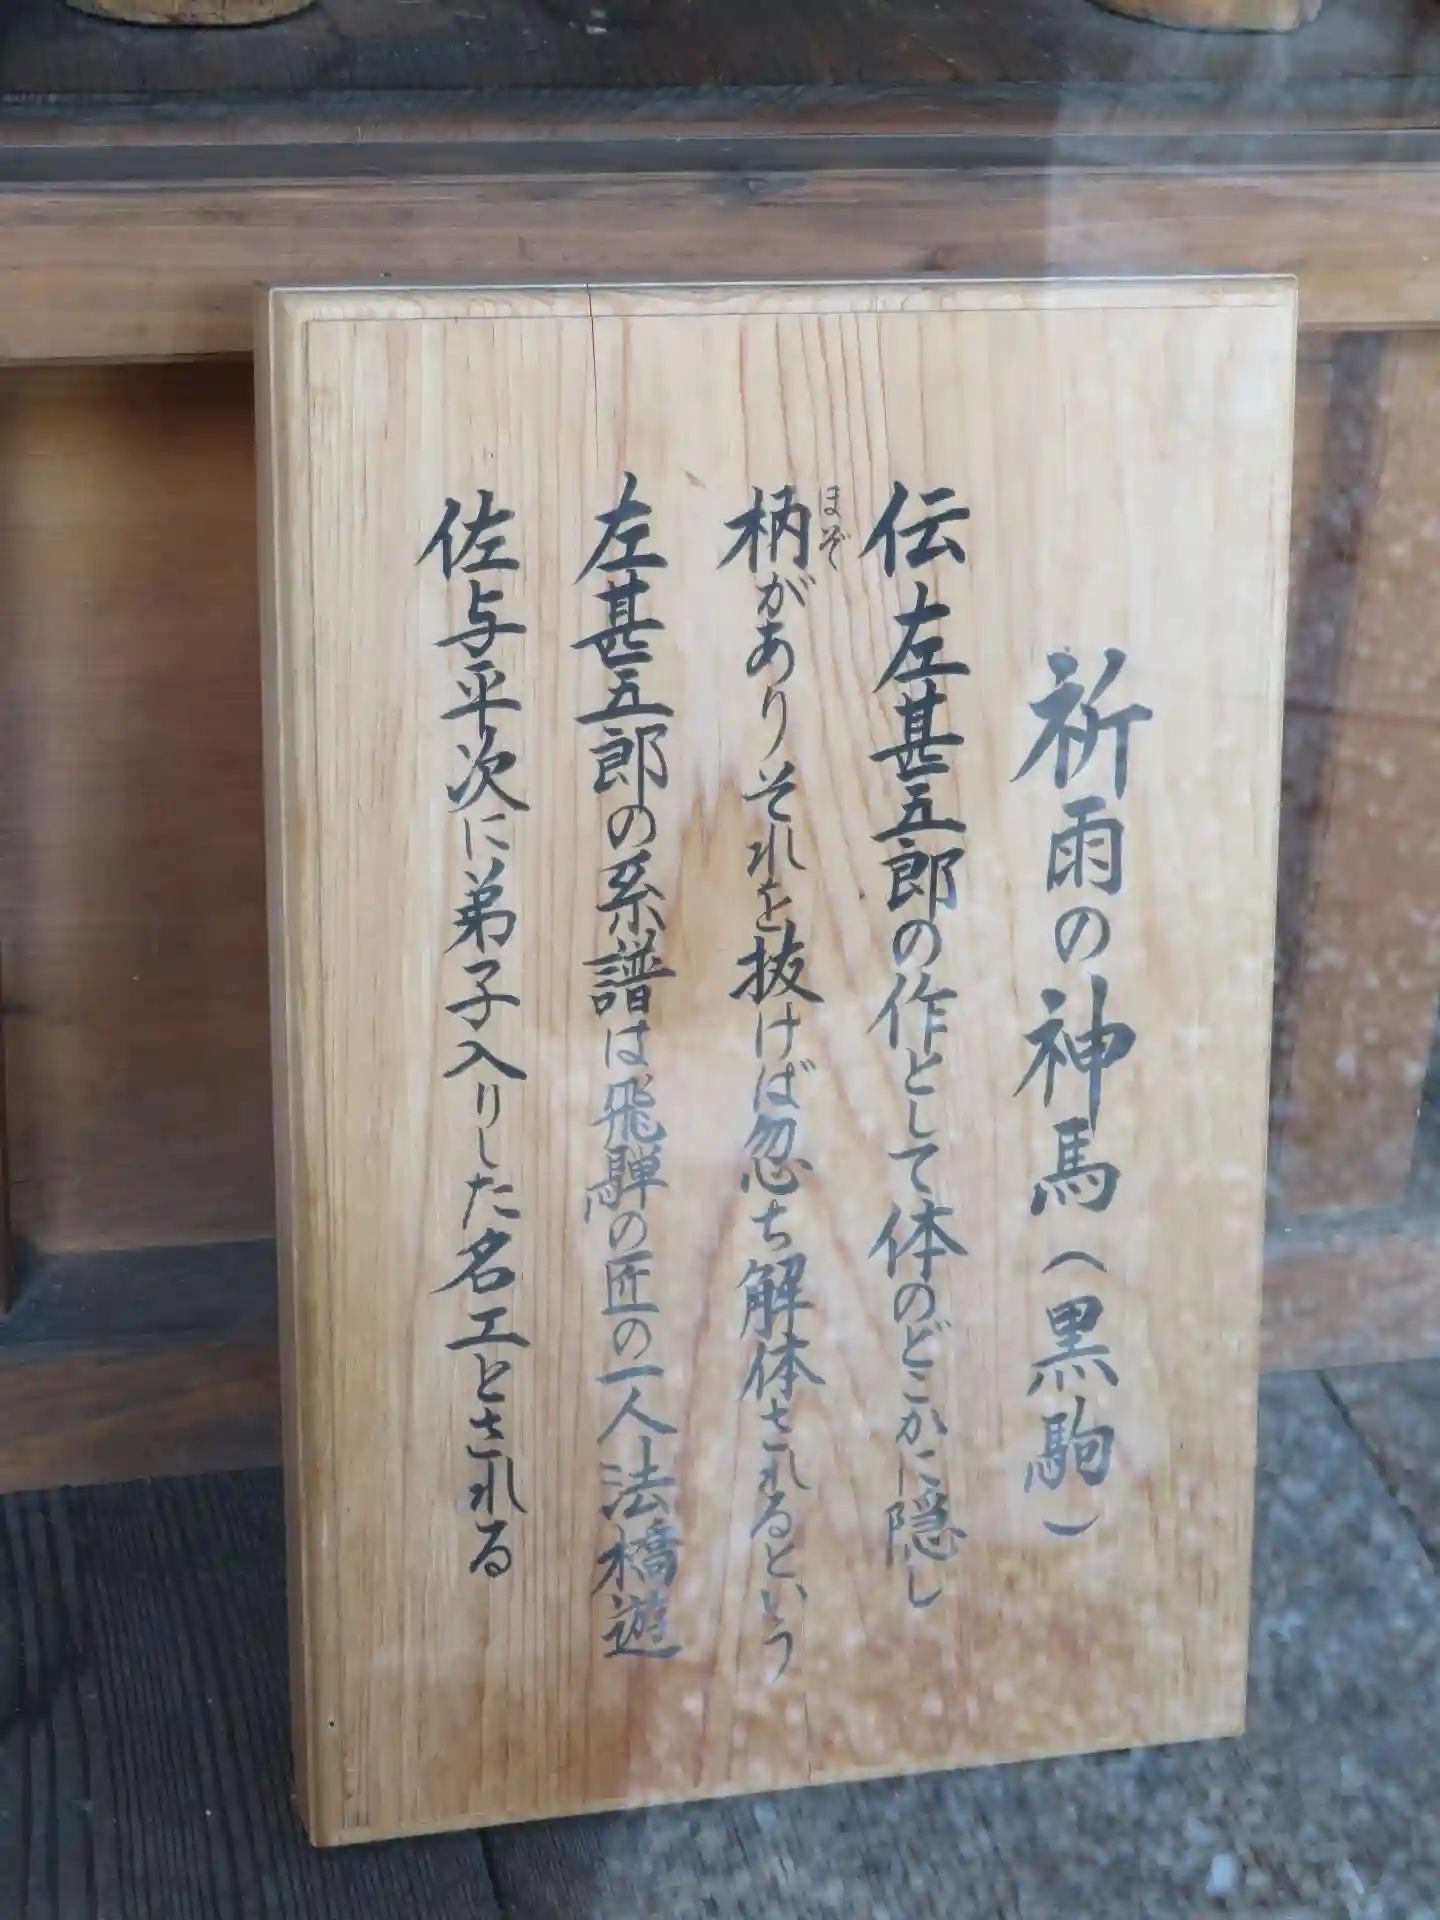 祈雨の神馬(黒駒)
伝 左甚五郎の作として体のどこかに隠し
ほぞ
柄がありそれを抜けば忽ち解体されるという
左甚五郎の系譜は飛騨の匠の一人法橋遊
佐与平次に弟子入りした名工とされる